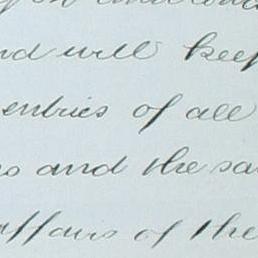 and will keep
entries of all
and the sa
affairs of the